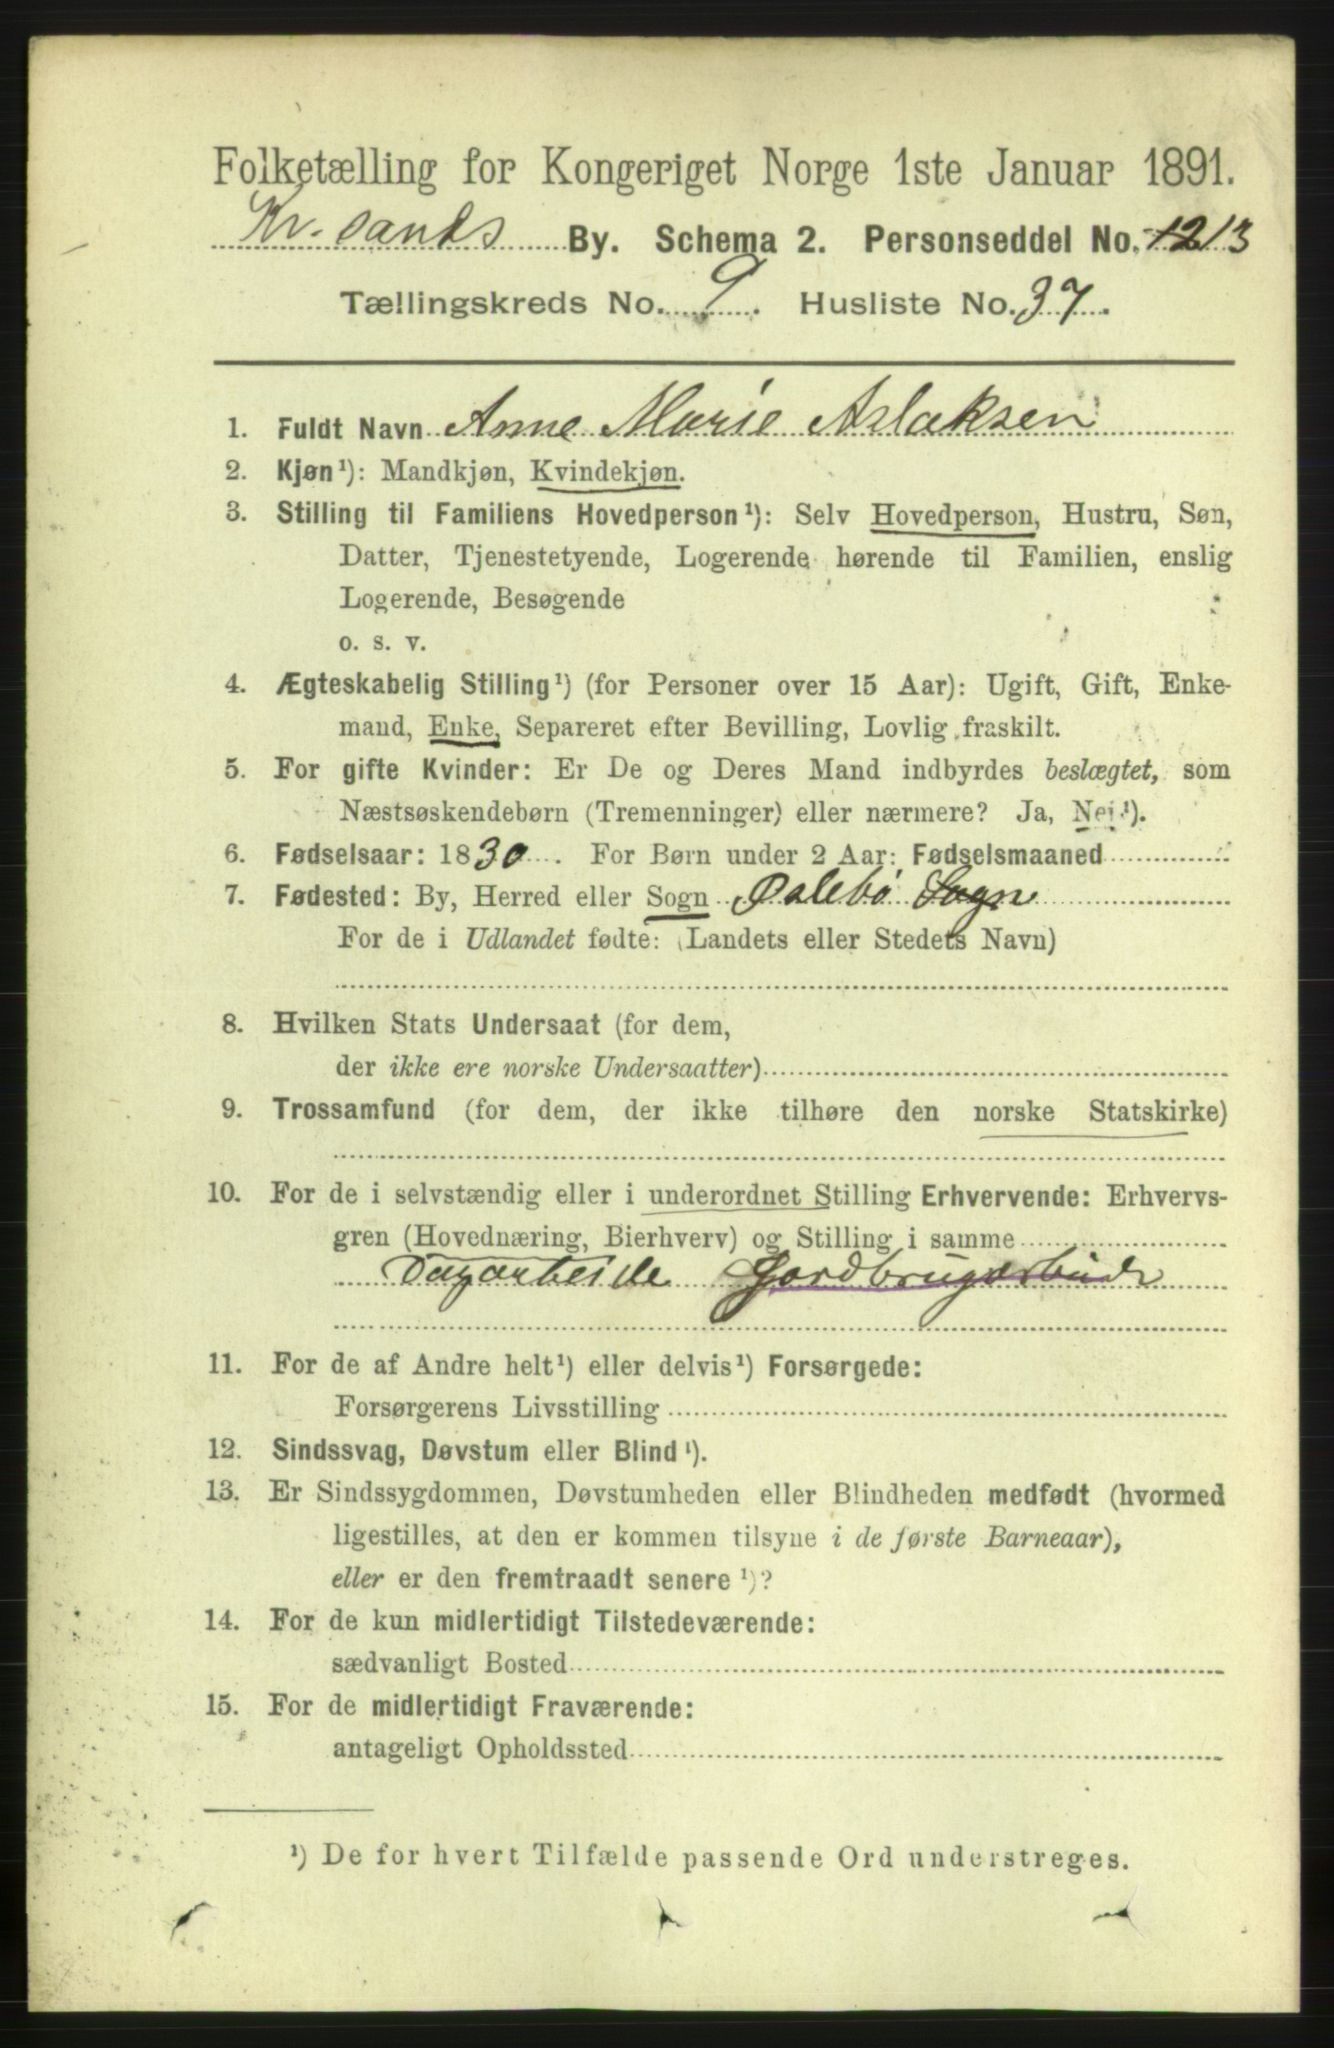 Folketælling for Kongeriget Norge 1ste Januar 1891.
Kr.sands By. Schema 2. Personseddel No. 1213
Tællingskreds No. 9. Husliste No. 37.
1. Fuldt Navn Anne Marie Aslaksen
2. Kjøn¹): Mandkjøn, Kvindekjøn.
3. Stilling til Familiens Hovedperson¹): Selv Hovedperson, Hustru, Søn,
Datter, Tjenestetyende, Logerende hørende til Familien, enslig
Logerende, Besøgende
o. s. v.
4. Ægteskabelig Stilling¹) (for Personer over 15 Aar): Ugift, Gift, Enke-
mand, Enke, Separeret efter Bevilling, Lovlig fraskilt.
5. For gifte Kvinder: Er De og Deres Mand indbyrdes beslægtet, som
Næstsøskendebørn (Tremenninger) eller nærmere? Ja, Nei¹).
6. Fødselsaar: 1830. For Børn under 2 Aar: Fødselsmaaned
7. Fødested: By, Herred eller Sogn Øslebø Sogn
For de i Udlandet fødte: (Landets eller Stedets Navn)
8. Hvilken Stats Undersaat (for dem,
der ikke ere norske Undersaatter)
9. Trossamfund (for dem, der ikke tilhøre den norske Statskirke)
10. For de i selvstændig eller i underordnet Stilling Erhvervende: Erhvervs-
gren (Hovednæring, Bierhverv) og Stilling i samme
Dagarbeide Jordbrugarbeide
11. For de af Andre helt¹) eller delvis¹) Forsørgede:
Forsørgerens Livsstilling
12. Sindssvag, Døvstum eller Blind¹).
13. Er Sindssygdommen, Døvstumheden eller Blindheden medfødt (hvormed
ligestilles, at den er kommen tilsyne i de første Barneaar),
eller er den fremtraadt senere ¹)?
14. For de kun midlertidigt Tilstedeværende:
sædvanligt Bosted
15. For de midlertidigt Fraværende:
antageligt Opholdssted
¹) De for hvert Tilfælde passende Ord understreges.